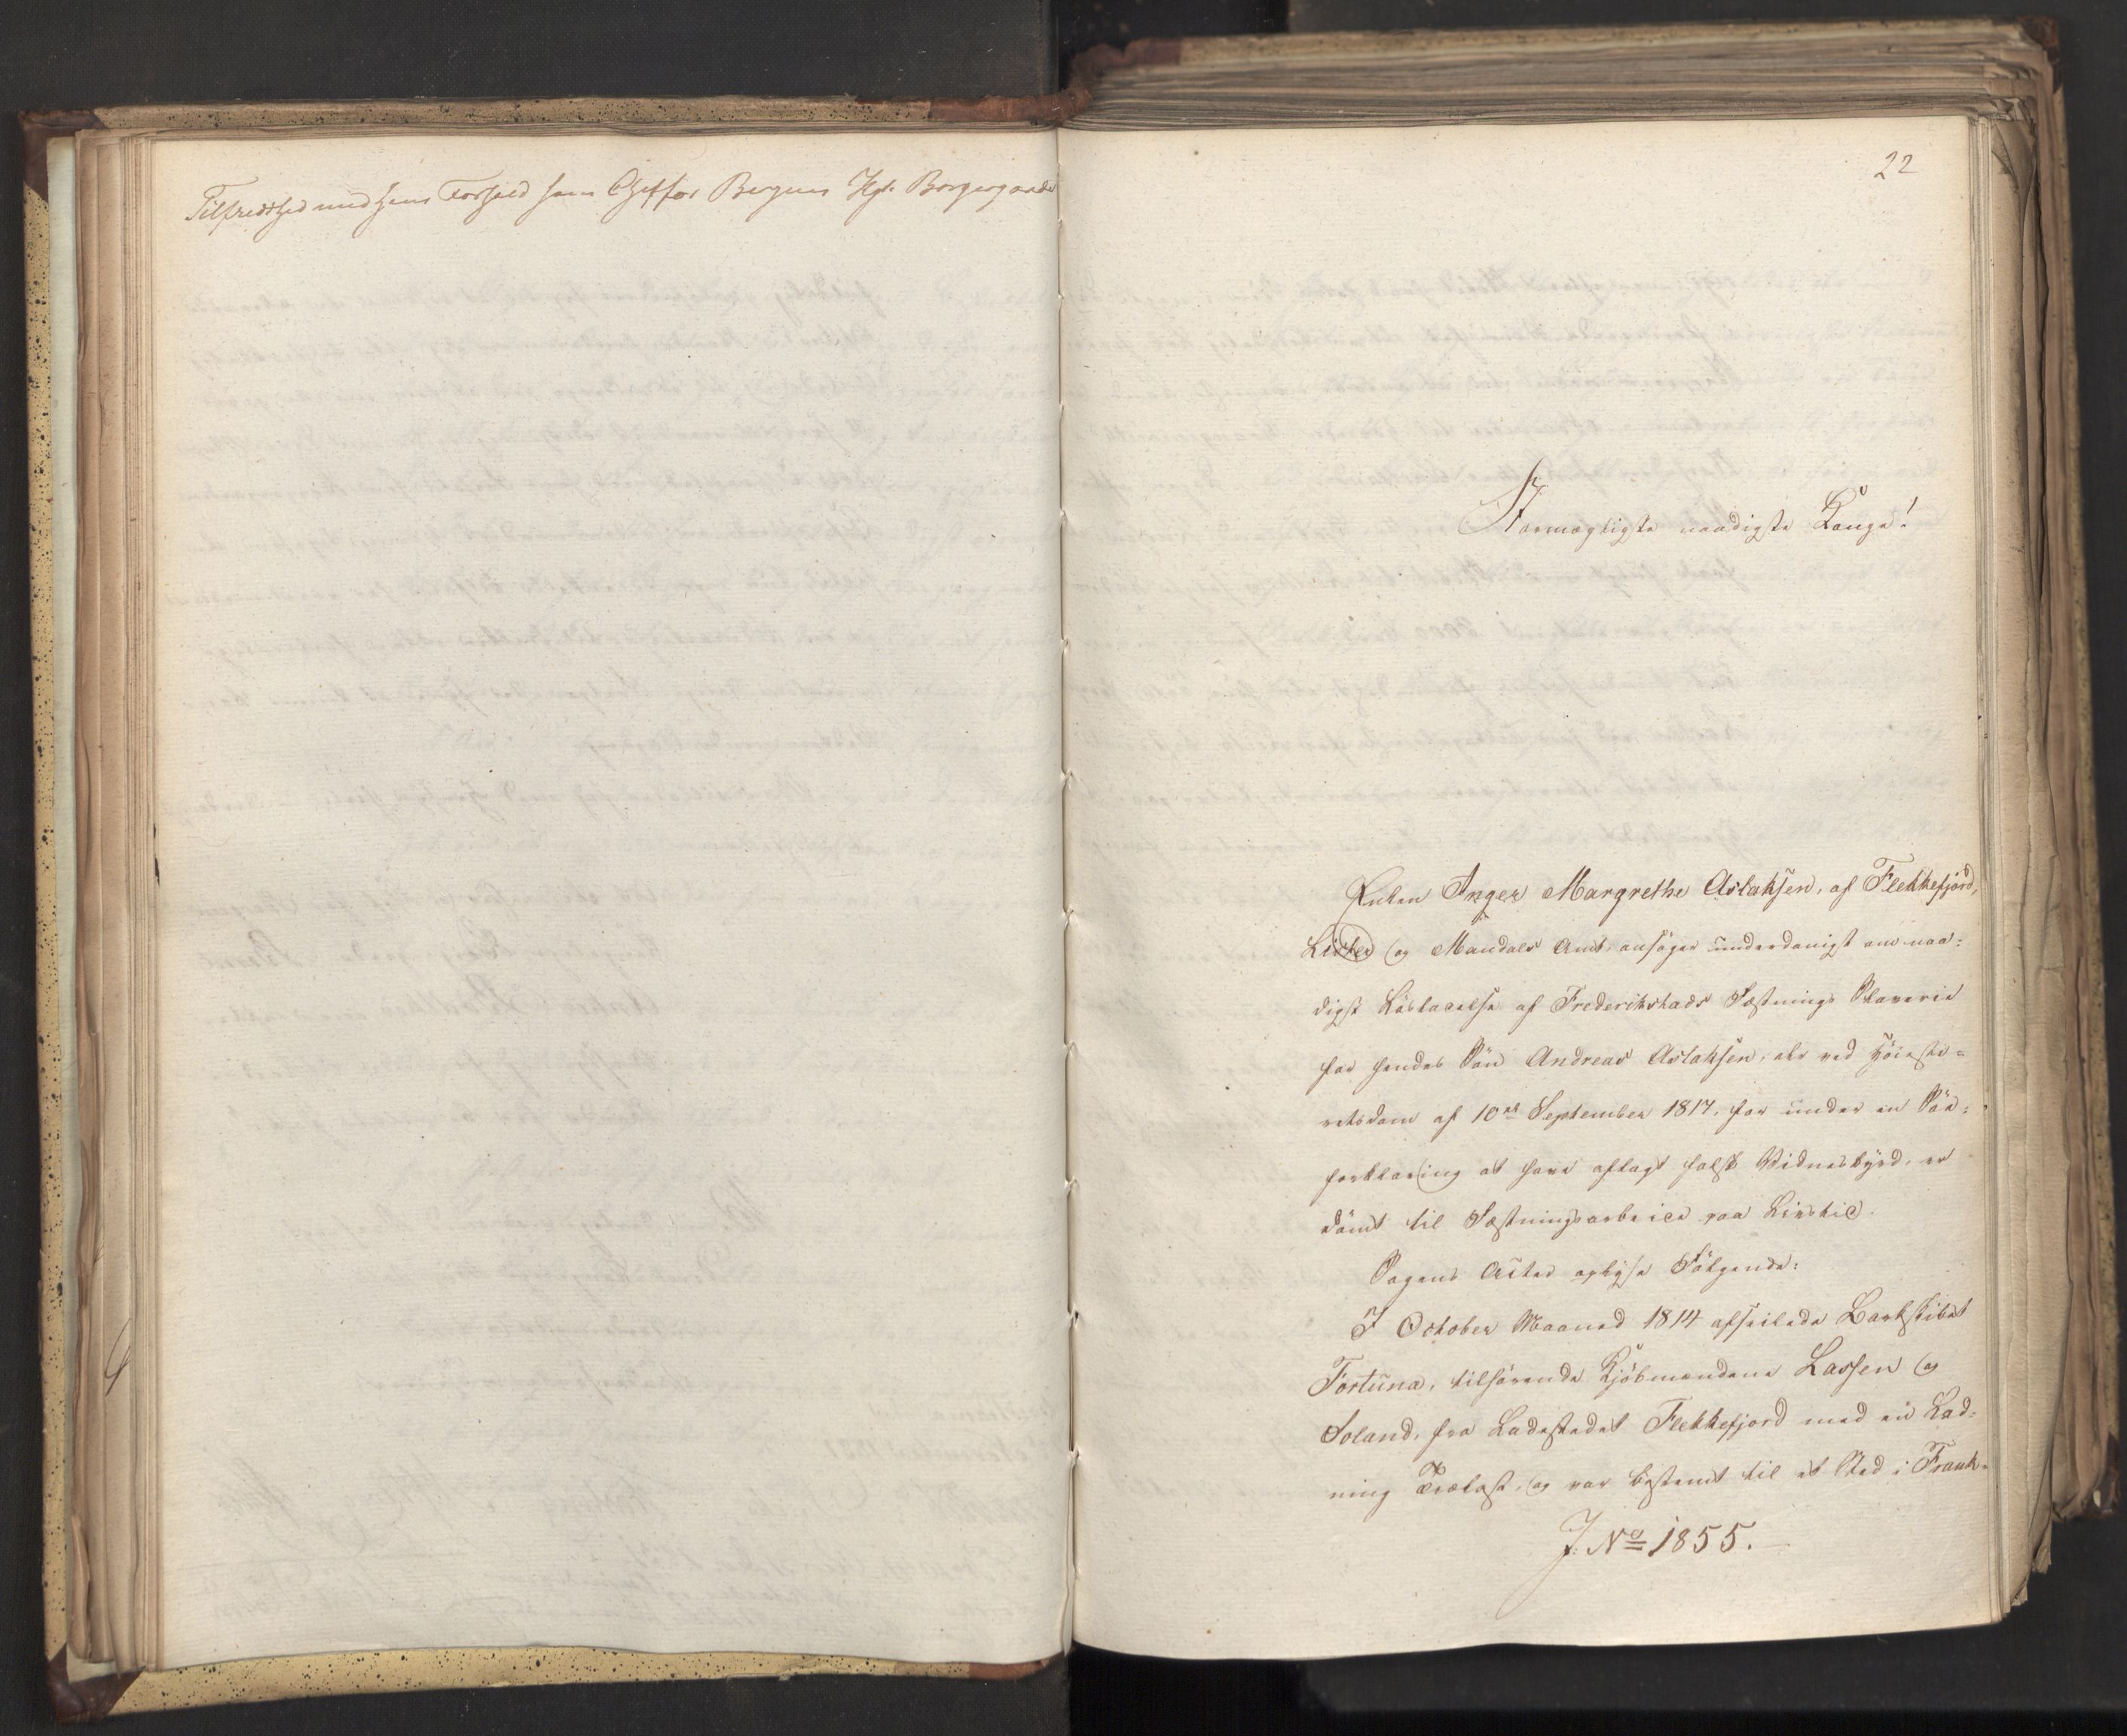 Tilfredshed med hans Forhold som Chef for Bergens Kgl. Borgergarde
22
Stormægtigste naadigste Konge!
Enken Inger Margrethe Aslaksen, af Flekkefjord,
Lister og Mandals Amt, ansøger underdanigst om naa-
digst Løsladelse af Frederikstads Fæstnings Slaverie
for hendes Søn Andreas Aslaksen, der ved Høieste-
retsdom af 10de September 1817, for under en Søe-
forklaring at have aflagt falsk Vidnesbyrd, er
dømt til Fæstningsarbeide paa Livstid.
Sagens Acter oplyse Følgende:
I October Maaned 1814 afseilede Barkskibet
Fortuna, tilhørende Kjøbmændene Lassen og
Soland, fra Ladestedet Flekkefjord med en Lad-
ning Trælast, og var bestemt til et Sted i Frank-
J. No 1855.